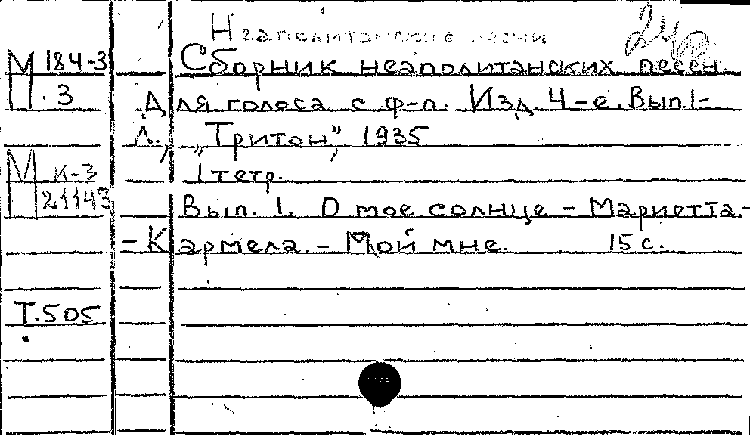 Неаполитанские песни
М 184-3
П.3
Сборник неаполитанских песен.
Для голоса с ф-п. Изд. 4-е. Вып. 1-
Л., „Тритон", 1935
1 тетр.
М к-3
П 21143
Вып. 1. О мое солнце – Мариетта. –
– Кармела. – Мой мне. 15 с.
Т.505